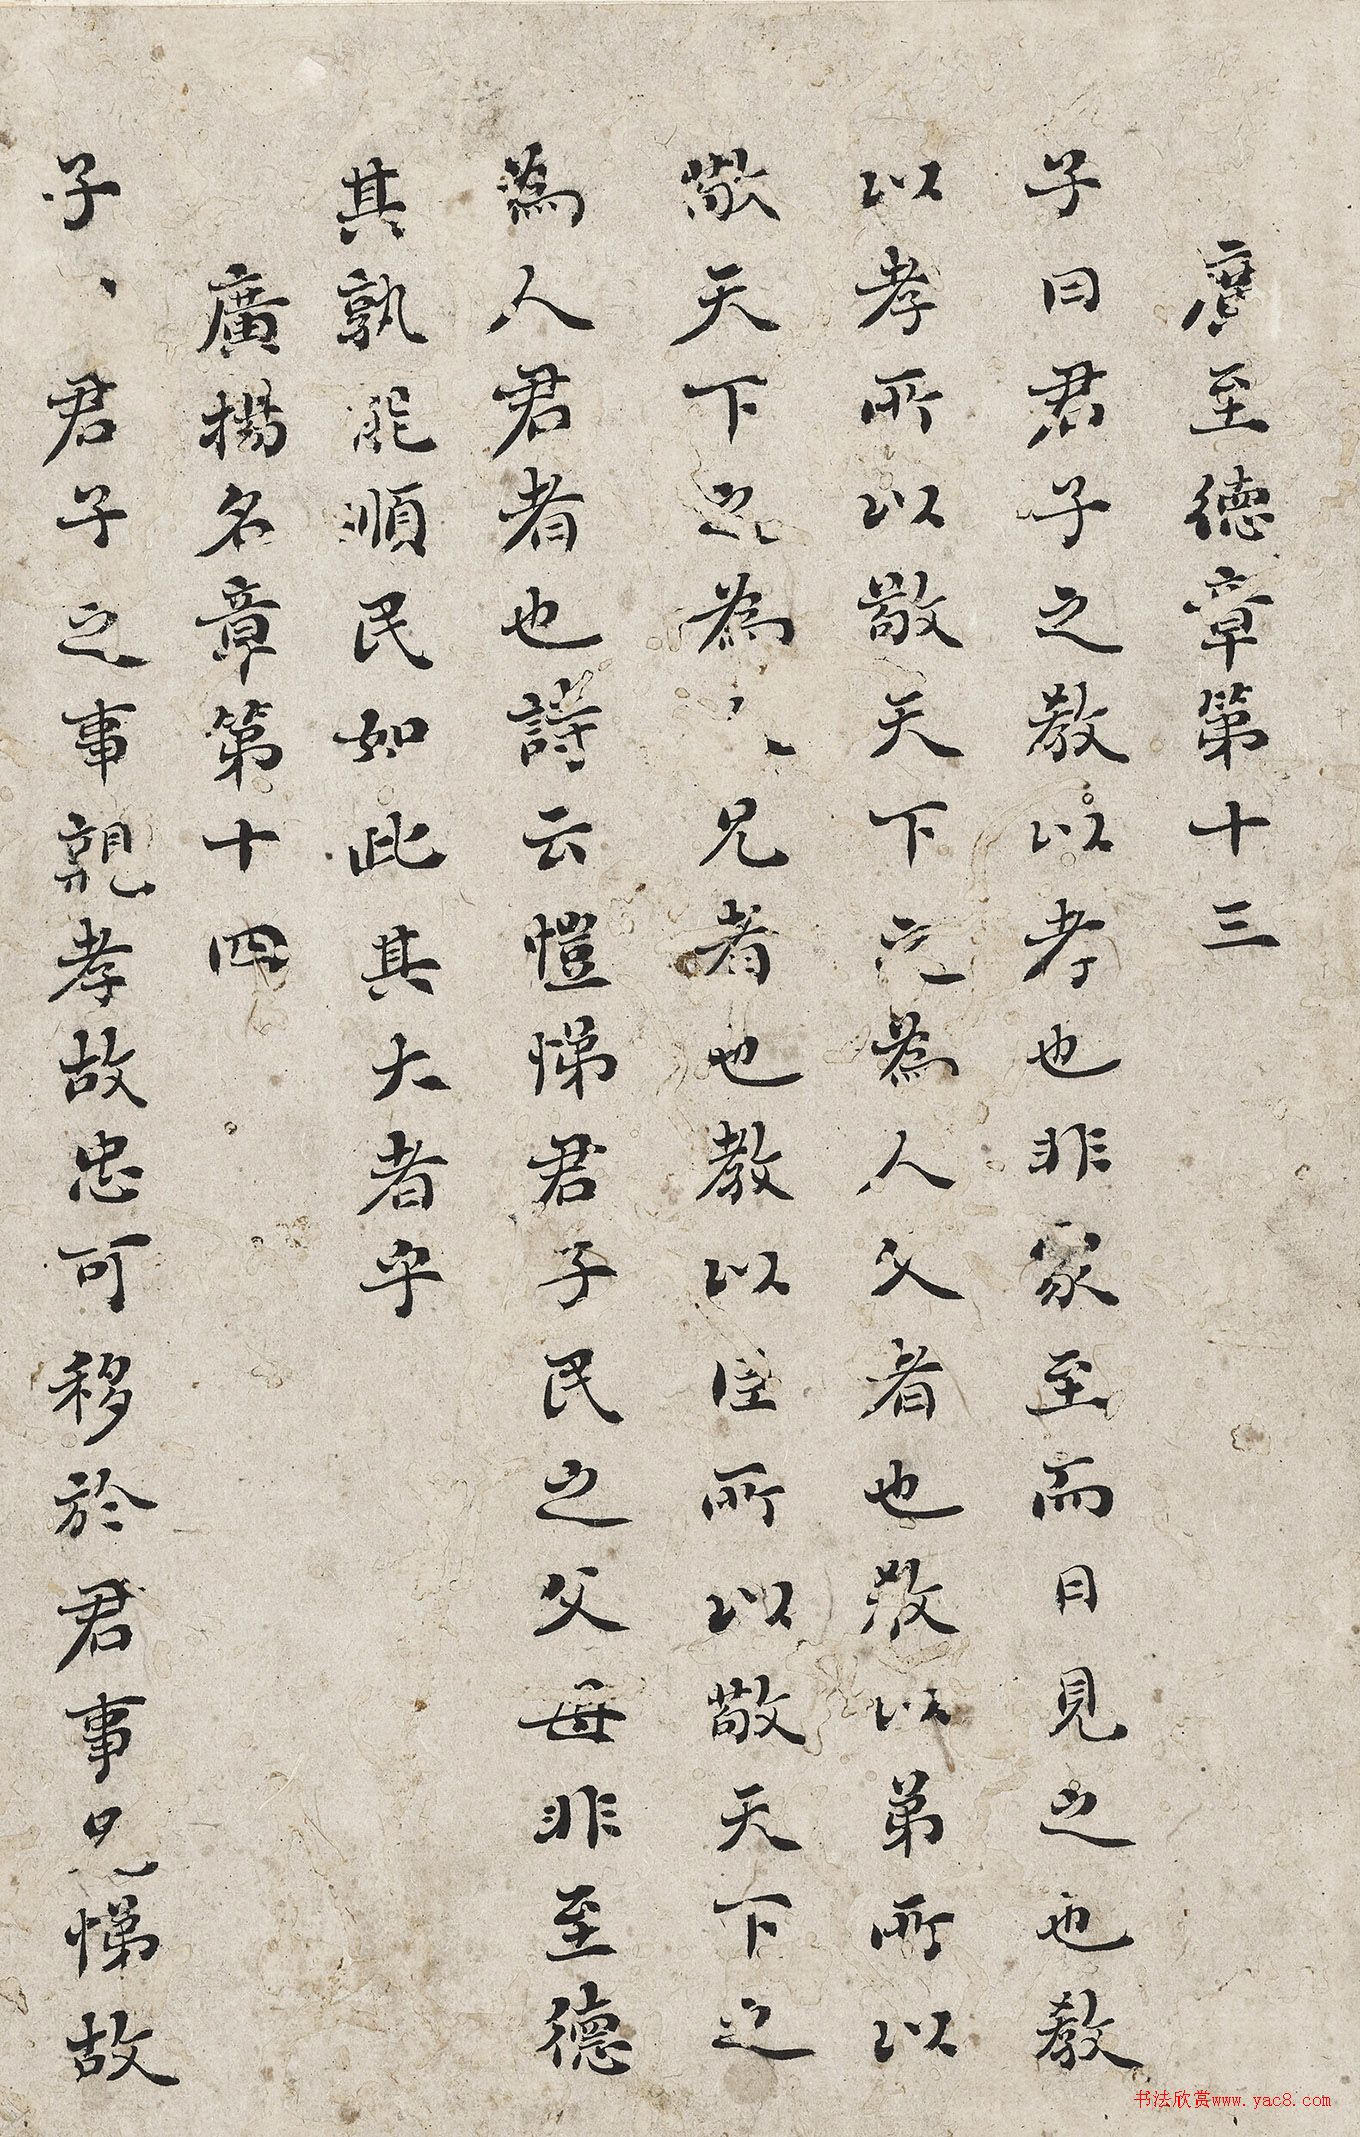 廣至德章第十三
子曰君子之教以孝也非家至而日見之也教
以孝所以敬天下之為人父者也教以弟所以
敬天下之為兄者也教以臣所以敬天下之
為人君者也詩云愷悌君子民之父母非至德
其孰能順民如此其大者乎
廣揚名章第十四
子君子之事親孝故忠可移於君事兄悌故
书法欣赏www.yac8.com